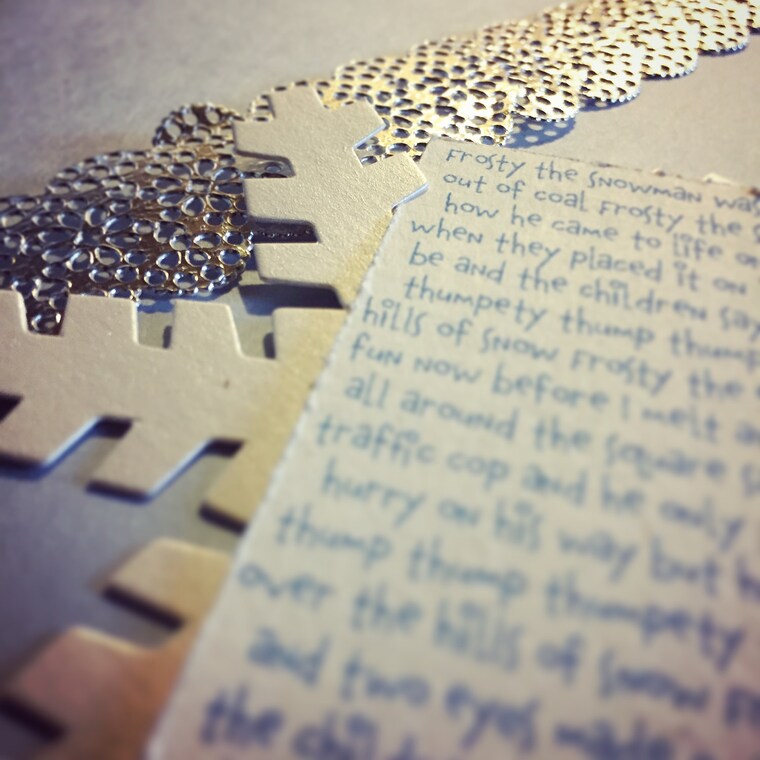 Frosty the snowman was
out of coal Frosty the
how he came to life
when they placed it on
be and the children say
thumpety thump thump
hills of snow Frosty the
fun now before I melt
all around the square
traffic cop and he only
hurry on his way but
thump thump thumpety
over the hills of snow
and two eyes made
the